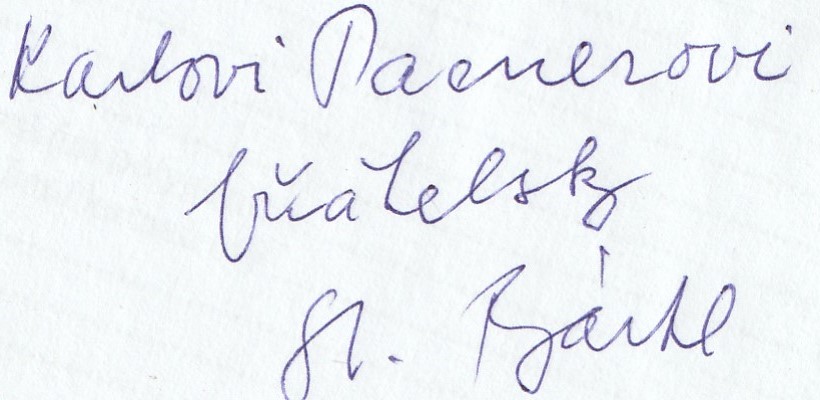 Karlovi Pacnerovi
přátelsky
St. Bártl